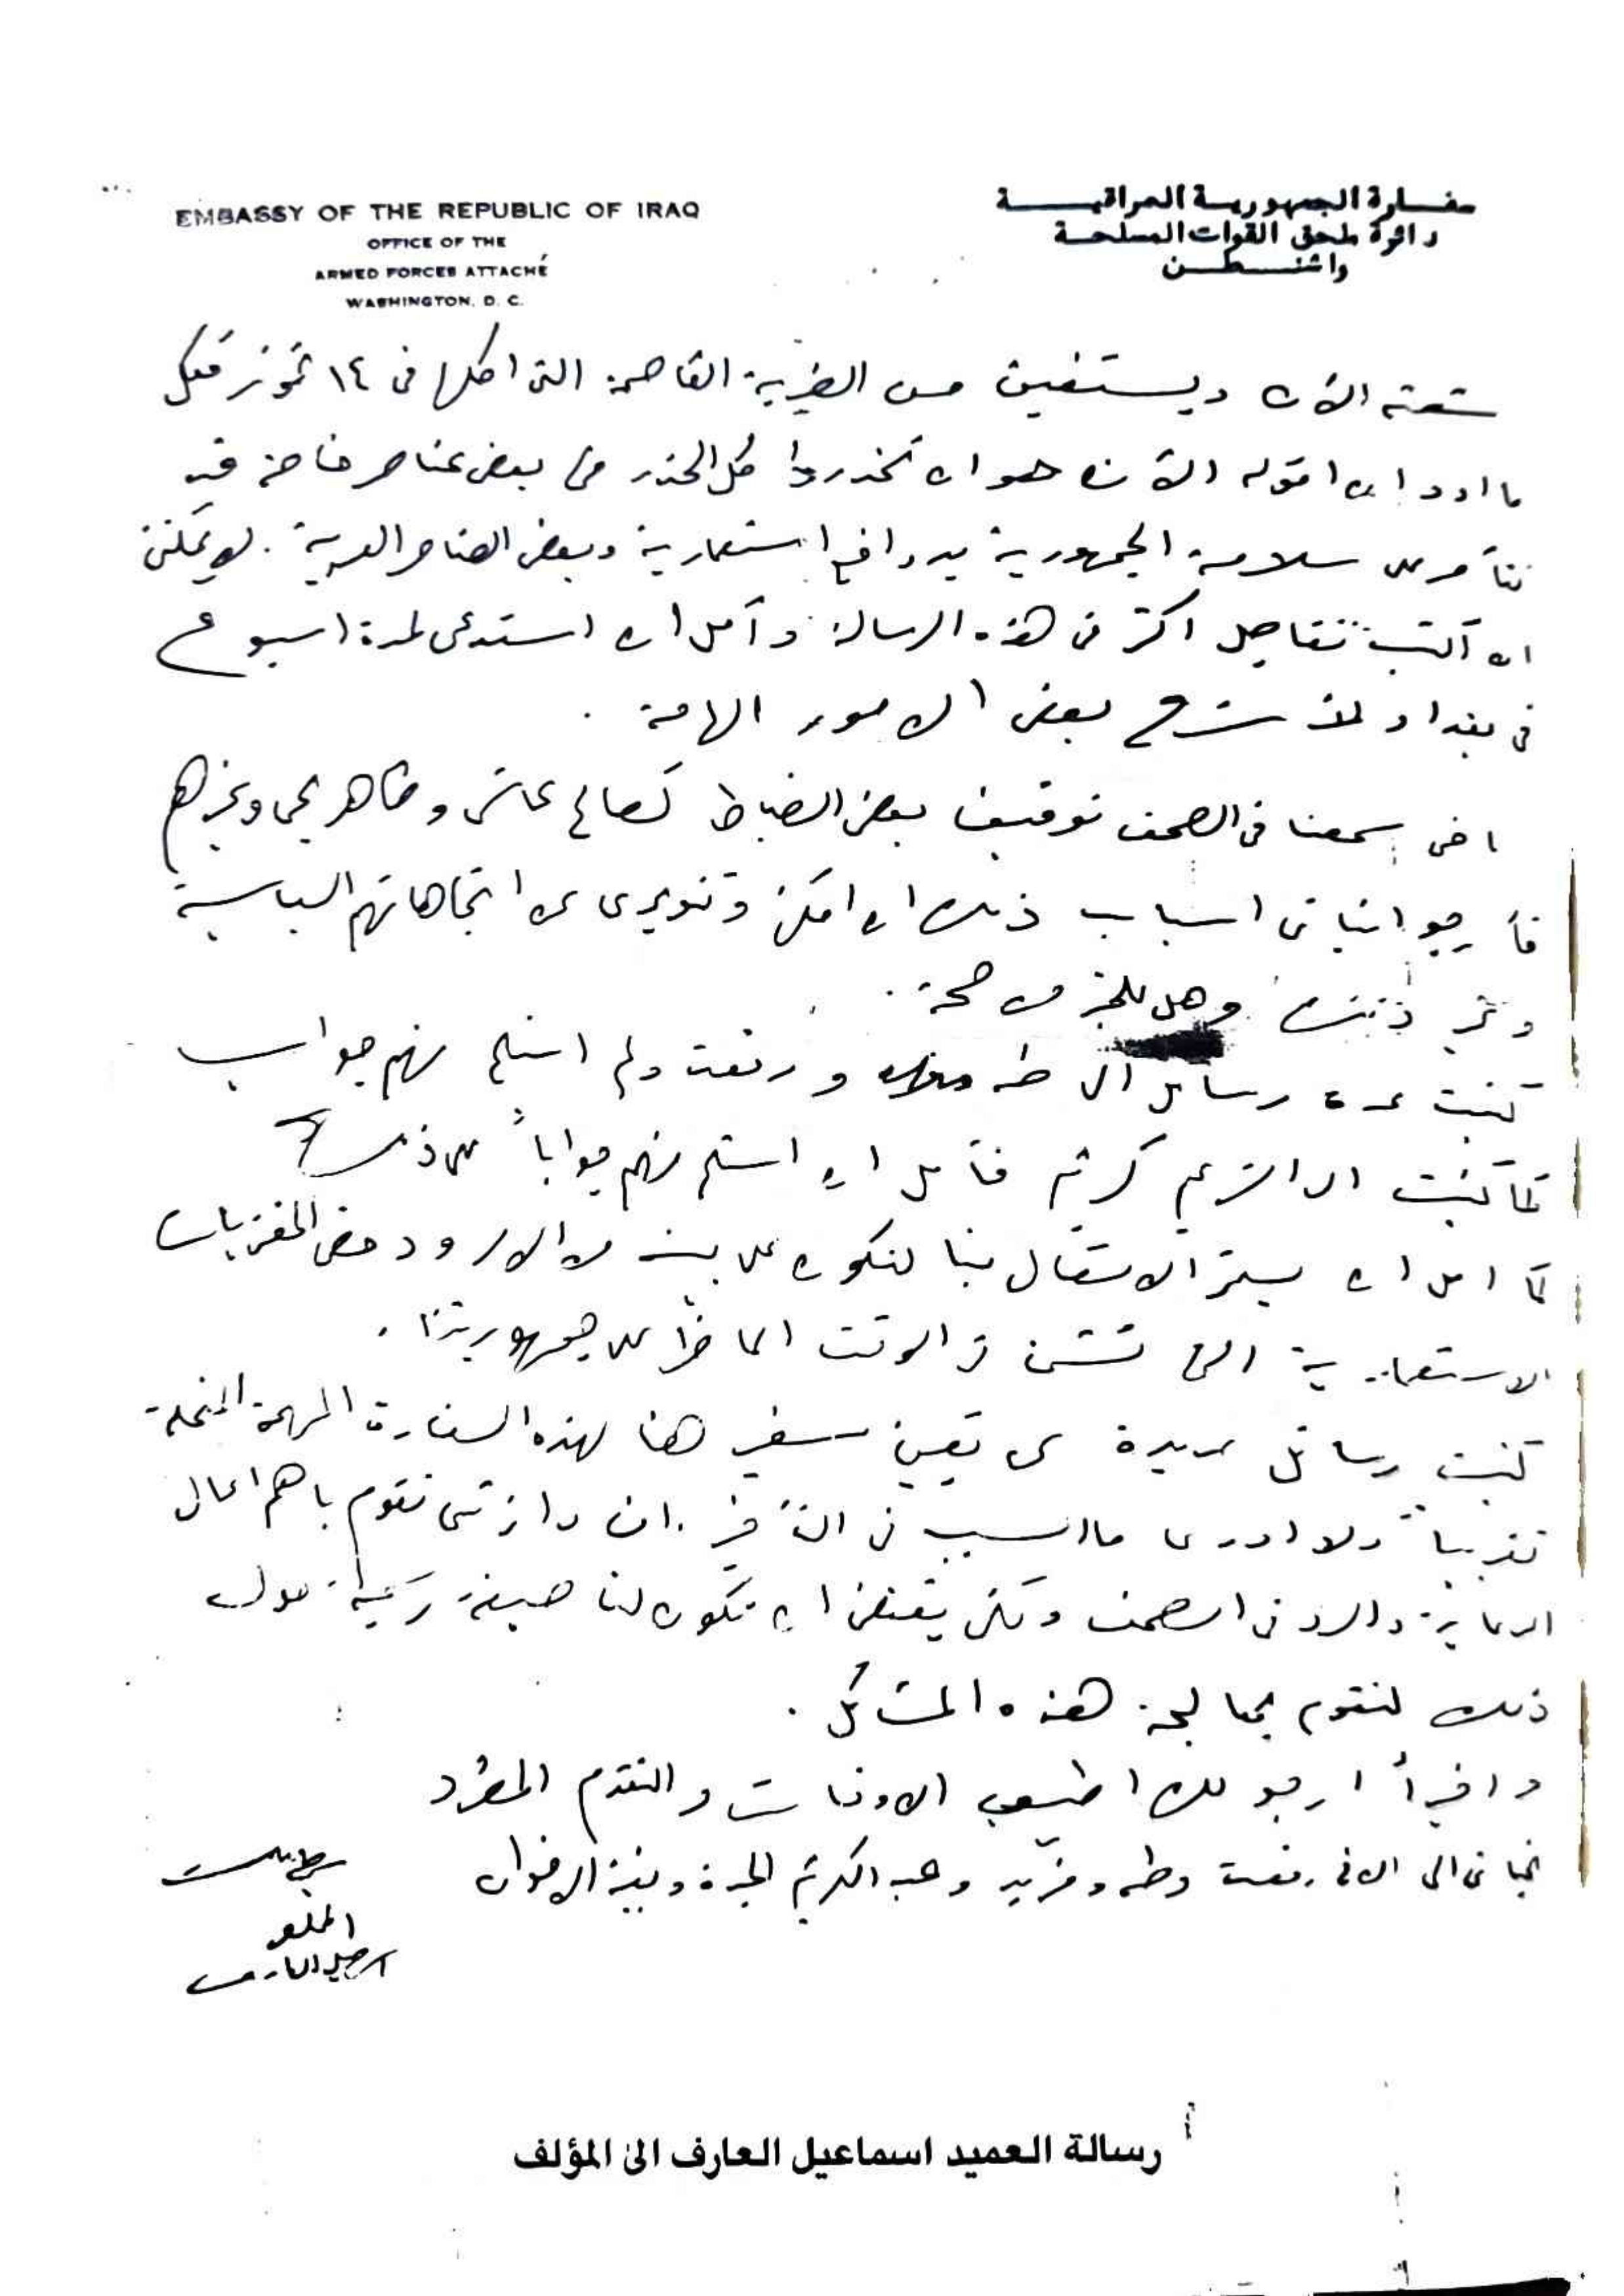 EMBASSY OF THE REPUBLIC OF IRAQ
OFFICE OF THE
ARMED FORCES ATTACHÉ
WASHINGTON, D. C.
سفارة الجمهورية العراقية
دائرة ملحق القوات المسلحة
واشنطن
الآن ويستفيق من الضربة القاصمة التي اكلها في ١٤ تموز فعل
ما اود ان اقوله الآن هو ان تحذروا كل الحذر من بعض عناصر خاصة قد
تتآمر على سلامة الجمهورية بدوافع استعمارية وبعض العناصر العربية . لا يمكنني
ان اكتب تفاصيل اكثر في هذه الرسالة وآمل ان استدعى لمدة اسبوع
في بغداد لأشرح بعض الامور الهامة .
اخي سمعنا في الصحف توقيف بعض الضباط كصالح وطاهر يحيى وغيرهم
فأرجو انبائي اسباب ذلك ان امكن وتنويري عن اتجاهاتهم السياسية
وغير ذلك وهل للخبر من صحة .
كتبت عدة رسائل الى طه ورفعت ولم استلم منهم جواب
كما كتبت الى الزعيم كريم فآمل ان استلم منهم جواباً على ذلك
كما آمل ان يستمر الاتصال بنا لنكون على بينة من الامر ودحض المفتريات
الاستعمارية التي تشن في الوقت الحاضر على جمهوريتنا .
كتبت رسائل عديدة عن تعيين سفير هنا لهذه السفارة المهمة المنحلة
تقريباً ولا ادري ما السبب في التأخير . ان دائرتي تقوم باهم اعمال
الدعاية والرد في الصحف ولكن يقتضي ان تكون لنا صيغة رسمية حول
ذلك لنقوم بمعالجة هذه المشاكل .
واخيراً ارجو لك اطيب الاوقات والتقدم المطرد
تحياتي الى الاخ رفعت وطه وفريد وعبد الكريم الجدة وبقية الاخوان
المخلص
اسماعيل العارف
رسالة العميد اسماعيل العارف الى المؤلف